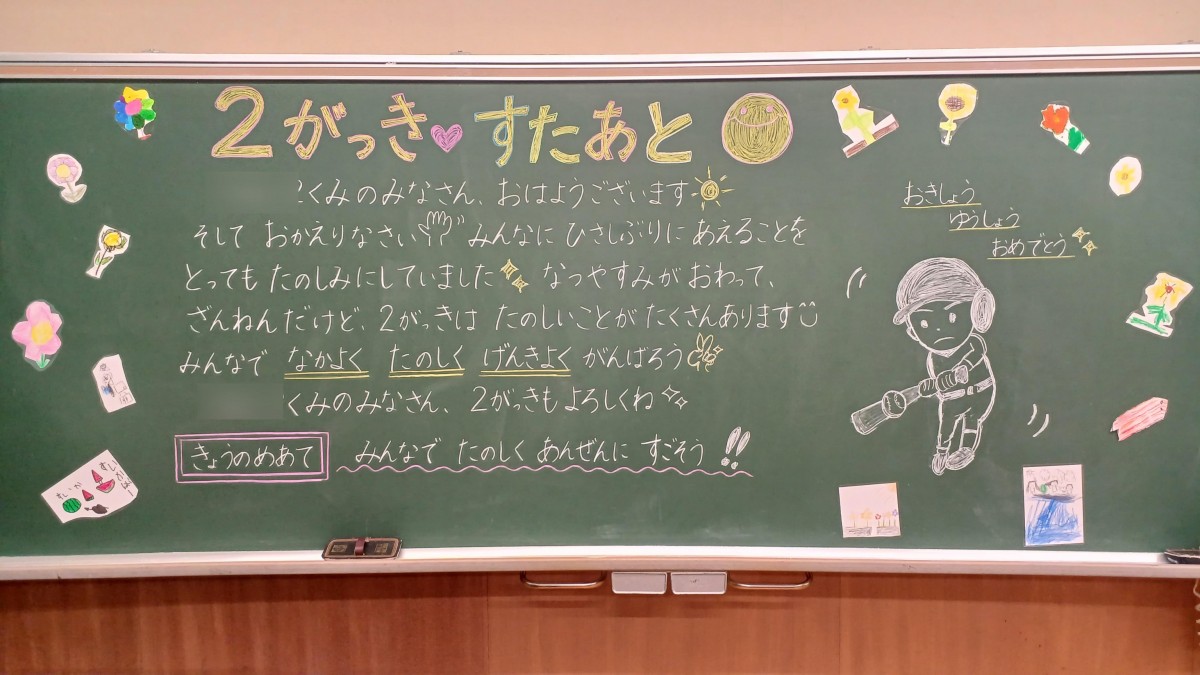 2がっき すたあと
くみのみなさん、おはようございます
そして おかえりなさい みんなに ひさしぶりに あえることを
とっても たのしみにしていました なつやすみが おわって、
ざんねんだけど、2がっきは たのしいことが たくさんあります
みんなで なかよく たのしく げんきよく がんばろう
くみのみなさん、2がっきもよろしくね
きょうのめあて みんなで たのしく あんぜんに すごそう!!
おきしょう
ゆうしょう
おめでとう
すいか